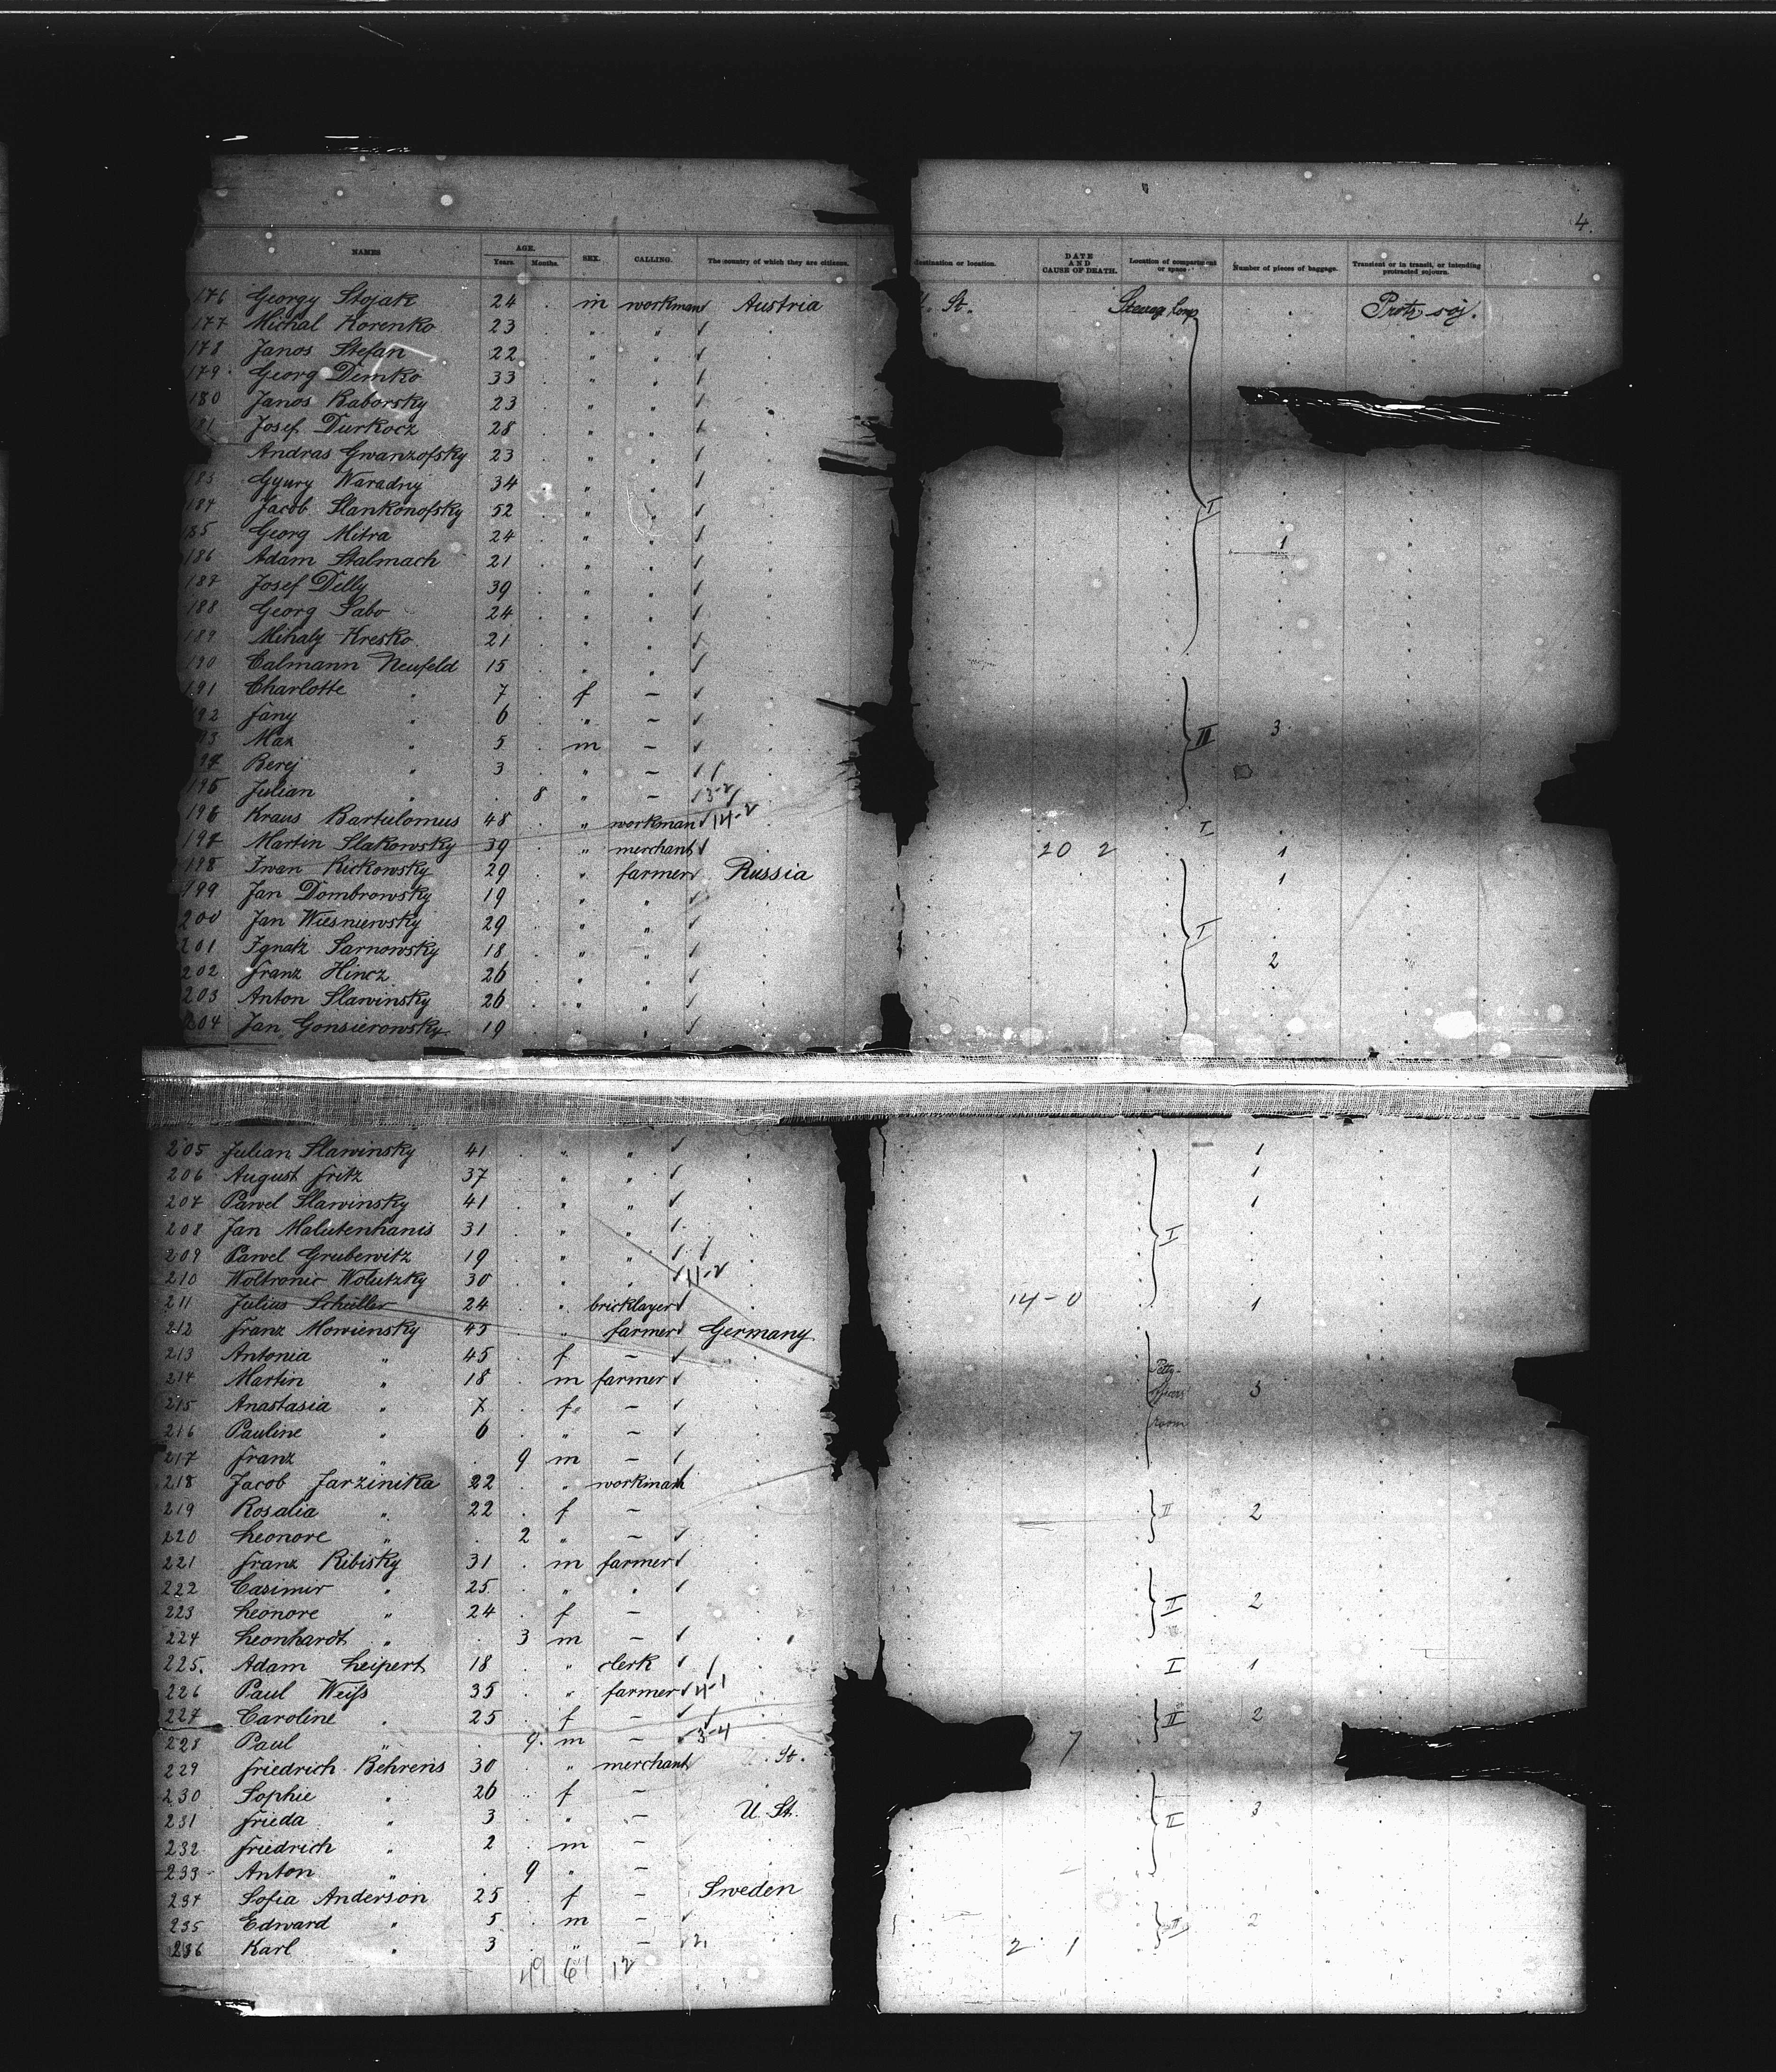 4.
NAMES AGE. Years. Months. SEX. CALLING. The country of which they are citizens. destination or location. DATE AND CAUSE OF DEATH. Location of compartment or space Number of pieces of baggage. Transient or in transit, or intending protracted sojourn.
176 Georgy Stojak 24 m workman Austria St. Steerag Comp Protr soj.
177 Michal Korenko 23 " "
178 Janos Stefan 22 " "
179 Georg Demko 33 " "
180 Janos Baborsky 23 " "
181 Josef Durkocz 28 " "
Andras Gwanzofsky 23 " "
183 Gyury Waradny 34 " "
184 Jacob Slankonofsky 52 " " I
185 Georg Mitra 24 " " 1
186 Adam Stalmach 21 " "
187 Josef Delly 39 " "
188 Georg Sabo 24 " "
189 Mihaly Kresko 21 " "
190 Calmann Neufeld 15 " "
191 Charlotte " 7 f –
192 Fany " 6 " –
193 Max " 5 m – II 3
194 Berej " 3 " –
195 Julian " 8 " – 3-2
196 Kraus Bartulomus 48 " workman 14-2 I
197 Martin Slakowsky 39 " merchant 20 2 1
198 Iwan Rickowsky 29 " farmer Russia 1
199 Jan Dombrowsky 19 " "
200 Jan Wiesniewsky 29 " " I
201 Ignatz Sarnowsky 18 " " 2
202 Franz Hincz 26 " "
203 Anton Slawinsky 26 " "
204 Jan Gonsierowsky 19 " "
205 Julian Slawinsky 41 " " 1
206 August Fritz 37 " " 1
207 Pawel Slawinsky 41 " " 1
208 Jan Malutenhanis 31 " " I
209 Pawel Grubewitz 19 " "
210 Woltronic Wolutzky 30 " " 11-2
211 Julius Schüller 24 " bricklayer 14-0 1
212 Franz Mowiensky 45 " farmer Germany
213 Antonia " 45 f –
214 Martin " 18 m farmer 3
215 Anastasia " 7 f –
216 Pauline " 6 " – room
217 Franz " 9 m –
218 Jacob Jarzinika 22 " workman
219 Rosalia " 22 f – II 2
220 Leonore " 2 " –
221 Franz Ribisky 31 m farmer
222 Casimir " 25 " "
223 Leonore " 24 f – II 2
224 Leonhardt " 3 m –
225. Adam Leipert 18 " clerk I 1
226 Paul Weiß 35 " farmer 4-1
227 Caroline " 25 f – II 2
228 Paul " 9 m – 3-4 7
229 Friedrich Behrens 30 " merchant U. St.
230 Sophie " 26 f –
231 Frieda " 3 " – U. St. II 3
232 Friedrich " 2 m –
233 Anton " 9 " –
234 Sofia Anderson 25 f – Sweden
235 Edward " 5 m – II 2
236 Karl " 3 " – 2 1
49 61 12